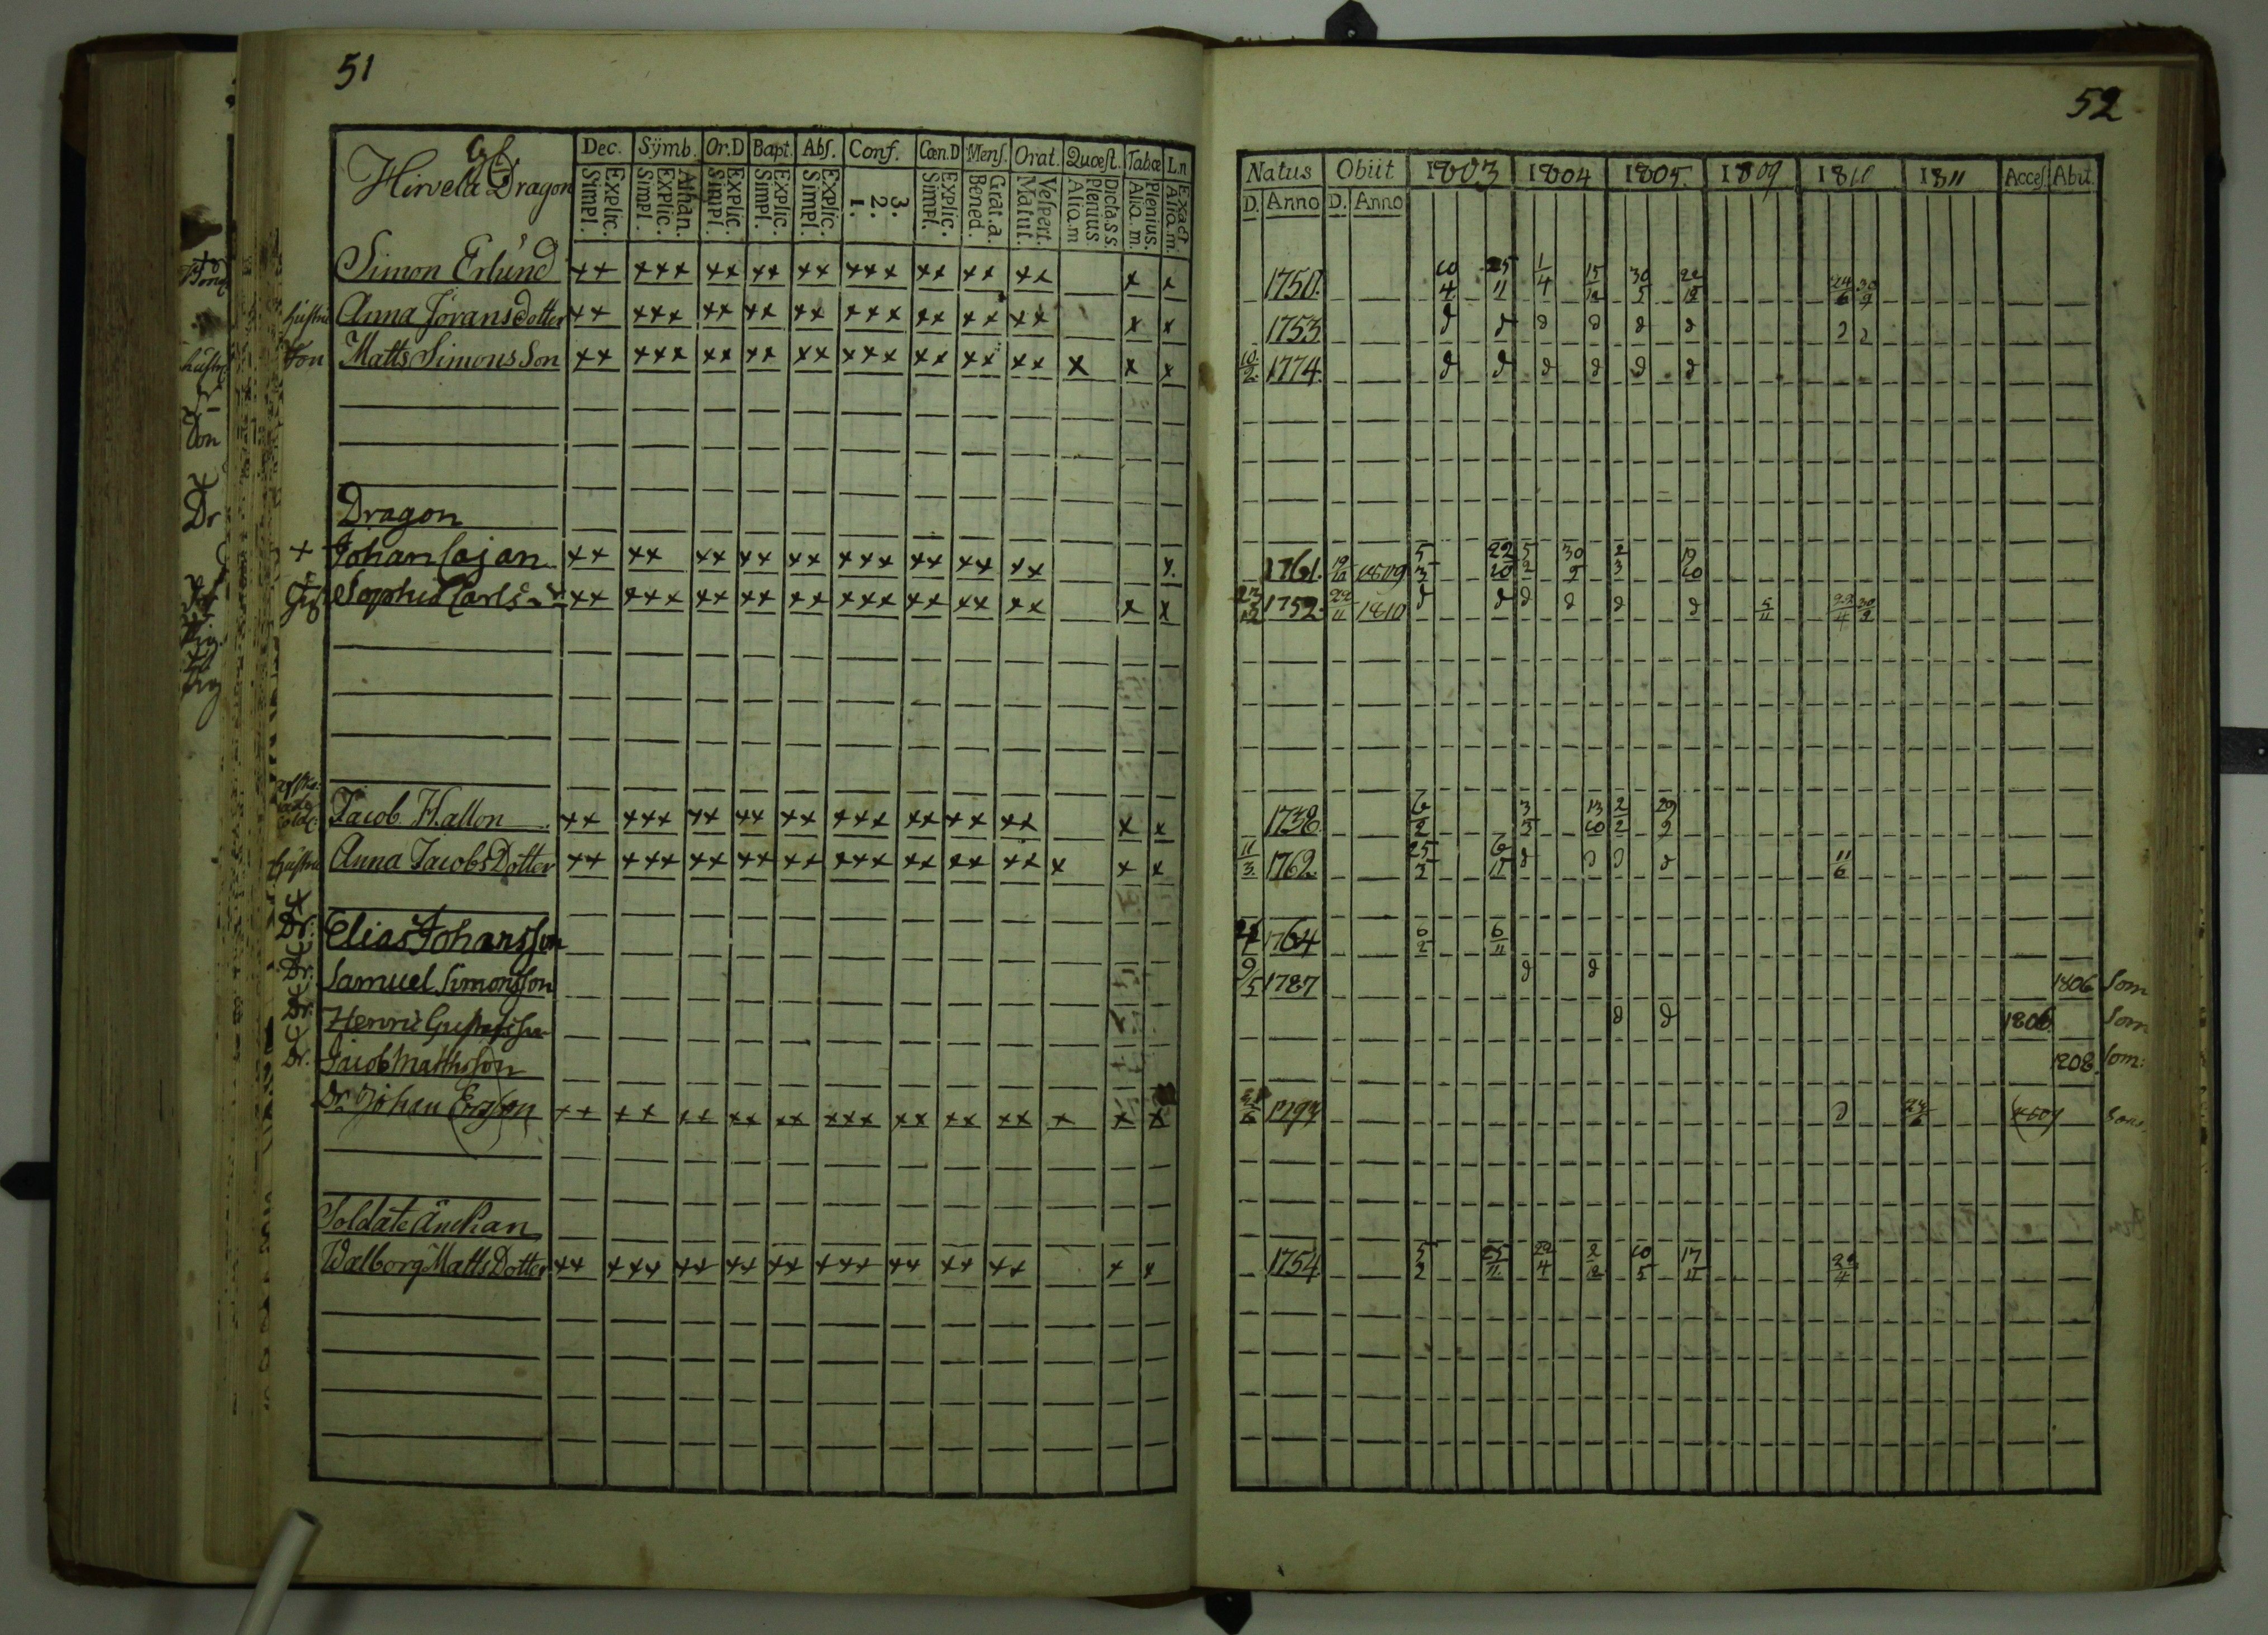 51
Hirvelä Dragon
Dec. Sÿmb. Or.D Bapt. Abs. Conf. Cœn.D Mens. Orat. Quœst. Tabœ Ln
Explic. Simpl. Athan. Explic. Simpl. Explic. Simpl. Explic. Simpl. Explic. Simpl. 3. 2. 1. Explic. Simpl. Grat.a. Bened. Vespert. Matut. Dicta.s.s. Plenius Alia.m Plenius. Alia.m. Exact. Alia.m.
Simon Erlund xx xxx xx xx xx xxx xx xx xx x x
hustru Anna Jörans dotter xx xxx xx xx xx xxx xx xx xx x x
Son Matts Simons Son xx xxx xx xx xx xxx xx xx xx x x x
Dragon
+ Johan Cajan xx xx xx xx xx xxx xx xx xx x.
Sophia Carls xx xxx xx xx xx xxx xx xx xx x x
Jacob Hallon xx xxx xx xx xx xxx xx xx xx x x
hustru Anna Jacobs Dotter xx xxx xx xx xx xxx xx xx xx x x x
Dr. Elias Johansson
Dr. Samuel Simonsson
Dr. Henric Gustafsson
Dr. Jacob Mattsson
Dr. Johan Ersson xx xx xx xx xx xxx xx xx xx x x x
Soldate Änckan
Walborg Matts Dotter xx xxx xx xx xx xxx xx xx xx x x
52
Natus Obiit 1803 1804 1805. 1809 1810 1811 Acces Abit.
D. Anno D. Anno
1750. 10/4 25/11 1/4 15/12 30/5 22/12 24/6 30/9
1753 d d d d d d d d
10/2 1774. d d d d d d
1761. 19/10 1809 5/3 22/10 5/2 30/9 2/3 19/10
1752. 22/11 1810 d d d d d d 5/11 22/4 30/9
1738. 6/2 3/3 13/10 2/2 29/9
11/3 1762. 25/3 6/11 d d d d 11/6
1764 6/2 6/11
9/5 1787 d d 1806 Som
d d 1806. Som
1808. Som:
1793 d
1754. 5/2 25/11 22/4 2/12 10/5 17/11 22/4